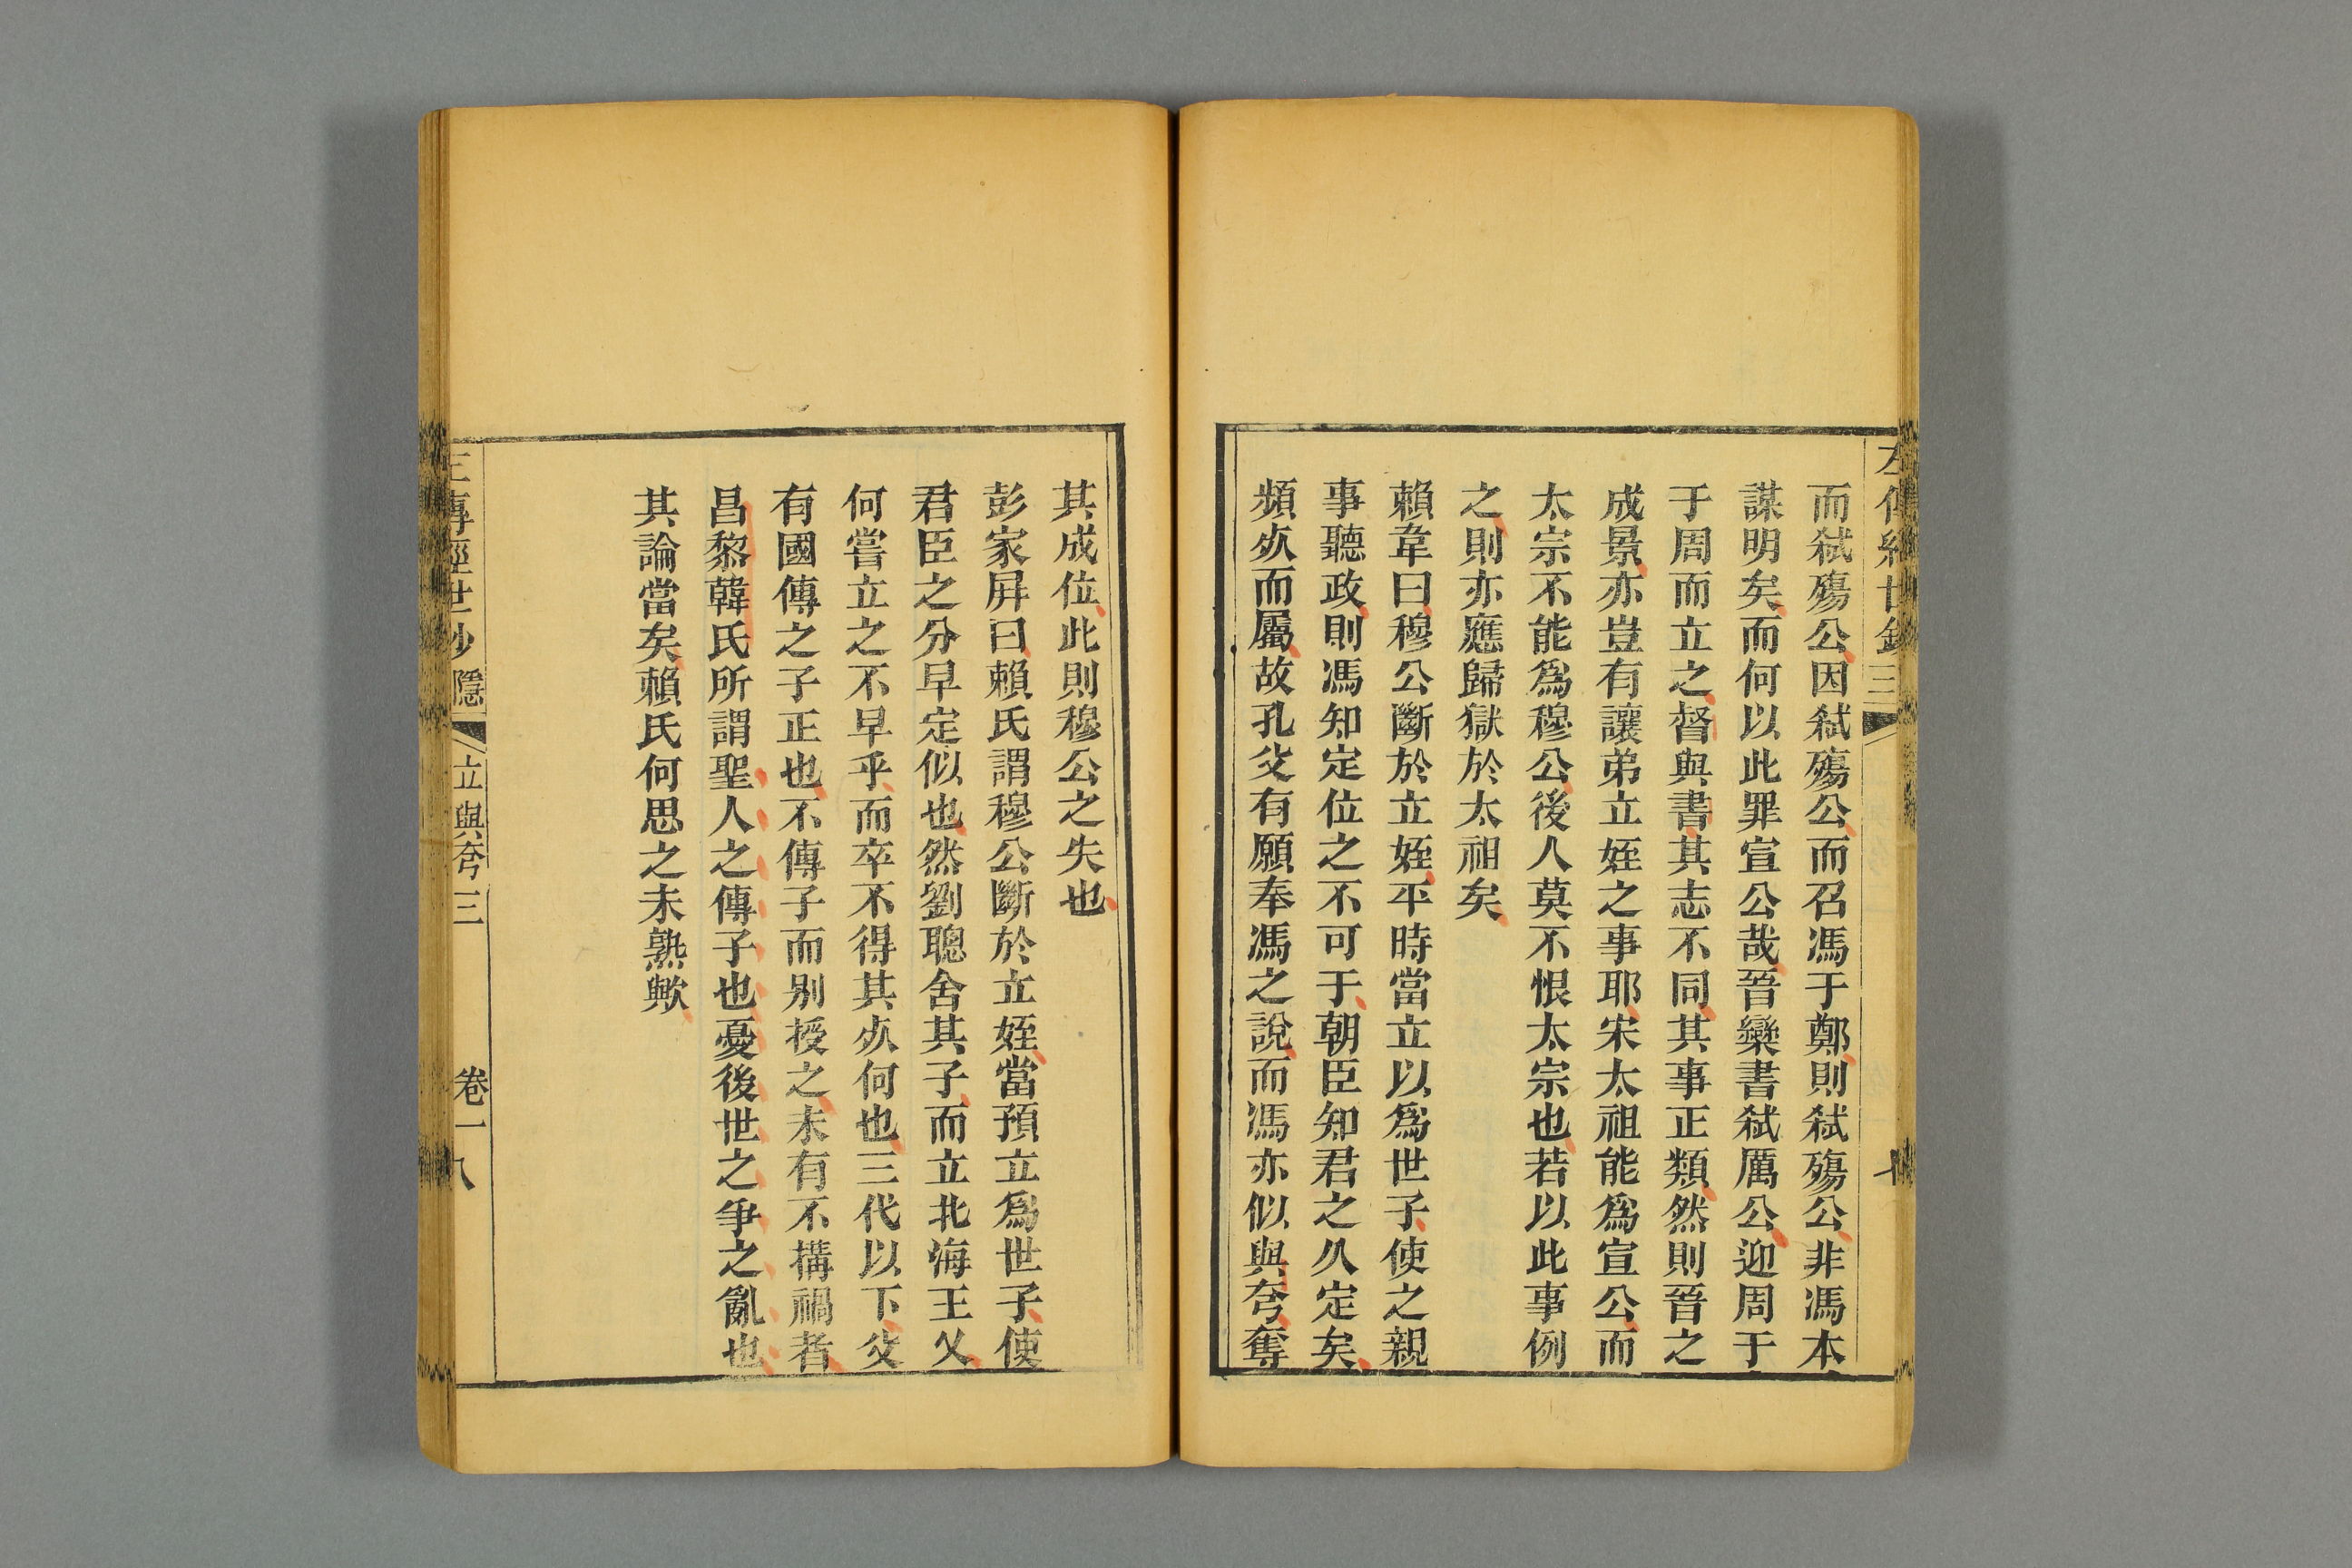 而弑殤公因弑殤公而召馮于鄭則弑殤公非馮本
謀明矣而何以此罪宣公哉晉欒書弑厲公迎周于
于周而立之督與書其志不同其事正類然則晉之
成景亦豈有讓弟立姪之事耶宋太祖能爲宣公而
太宗不能爲穆公後人莫不恨太宗也若以此事例
之則亦應歸獄於太祖矣
賴韋曰穆公斷於立姪平時當立以爲世子使之親
事聽政則馮知定位之不可于朝臣知君之久定矣
頻歿而屬故孔父有願奉馮之說而馮亦似與夸奪
其成位此則穆公之失也
彭家屛曰賴氏謂穆公斷於立姪當預立爲世子使
君臣之分早定似也然劉聰舍其子而立北海王乂
何嘗立之不早乎而卒不得其歿何也三代以下父
有國傳之子正也不傳子而别授之未有不搆禍者
昌黎韓氏所謂聖人之傳子也憂後世之爭之亂也
其論當矣賴氏何思之未熟歟
傳經世鈔隱
立與夸三
卷一
八